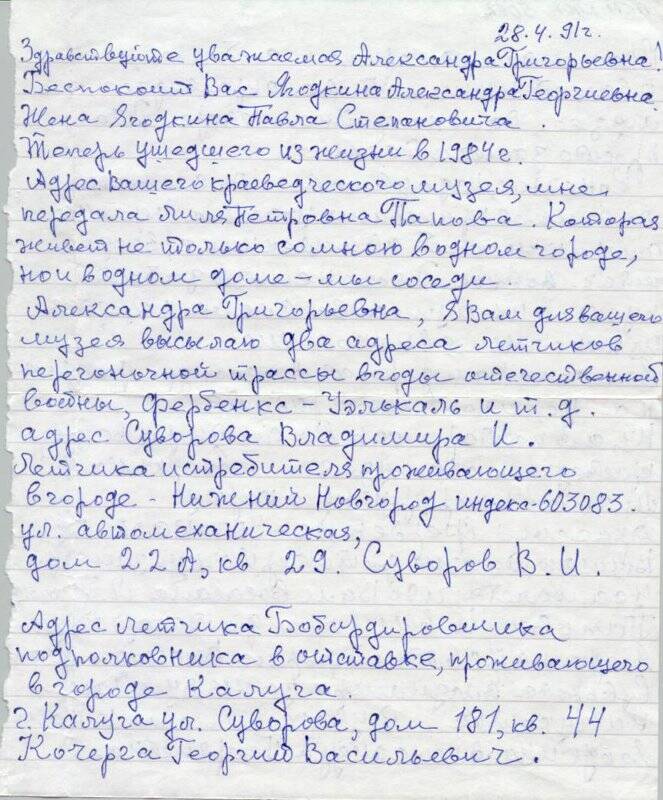 28.4.91г.
Здравствуйте уважаемая Александра Григорьевна!
Беспокоит Вас Ягодкина Александра Георгиевна.
Жена Ягодкина Павла Степановича.
Теперь ушедшего из жизни в 1984г.
Адрес Вашего краеведческого музея, мне
передала Лиля Петровна Папова. Которая
живет не только со мною в одном городе,
но и в одном доме – мы соседи.
Александра Григорьевна, я Вам для вашего
музея высылаю два адреса летчиков
перегоночной трассы в годы отечественной
войны, Фербенкс – Уэлькаль и т.д.
адрес Суворова Владимира И.
Летчика истребителя проживающего
в городе – Нижний Новгород индекс-603083.
ул. автомеханическая,
дом 22А, кв 29. Суворов В.И.
Адрес летчика Бобардировшика
подполковника в отставке, проживающего
в городе Калуга.
г. Калуга ул. Суворова, дом 181, кв. 44
Кочерга Георгий Васильевич.